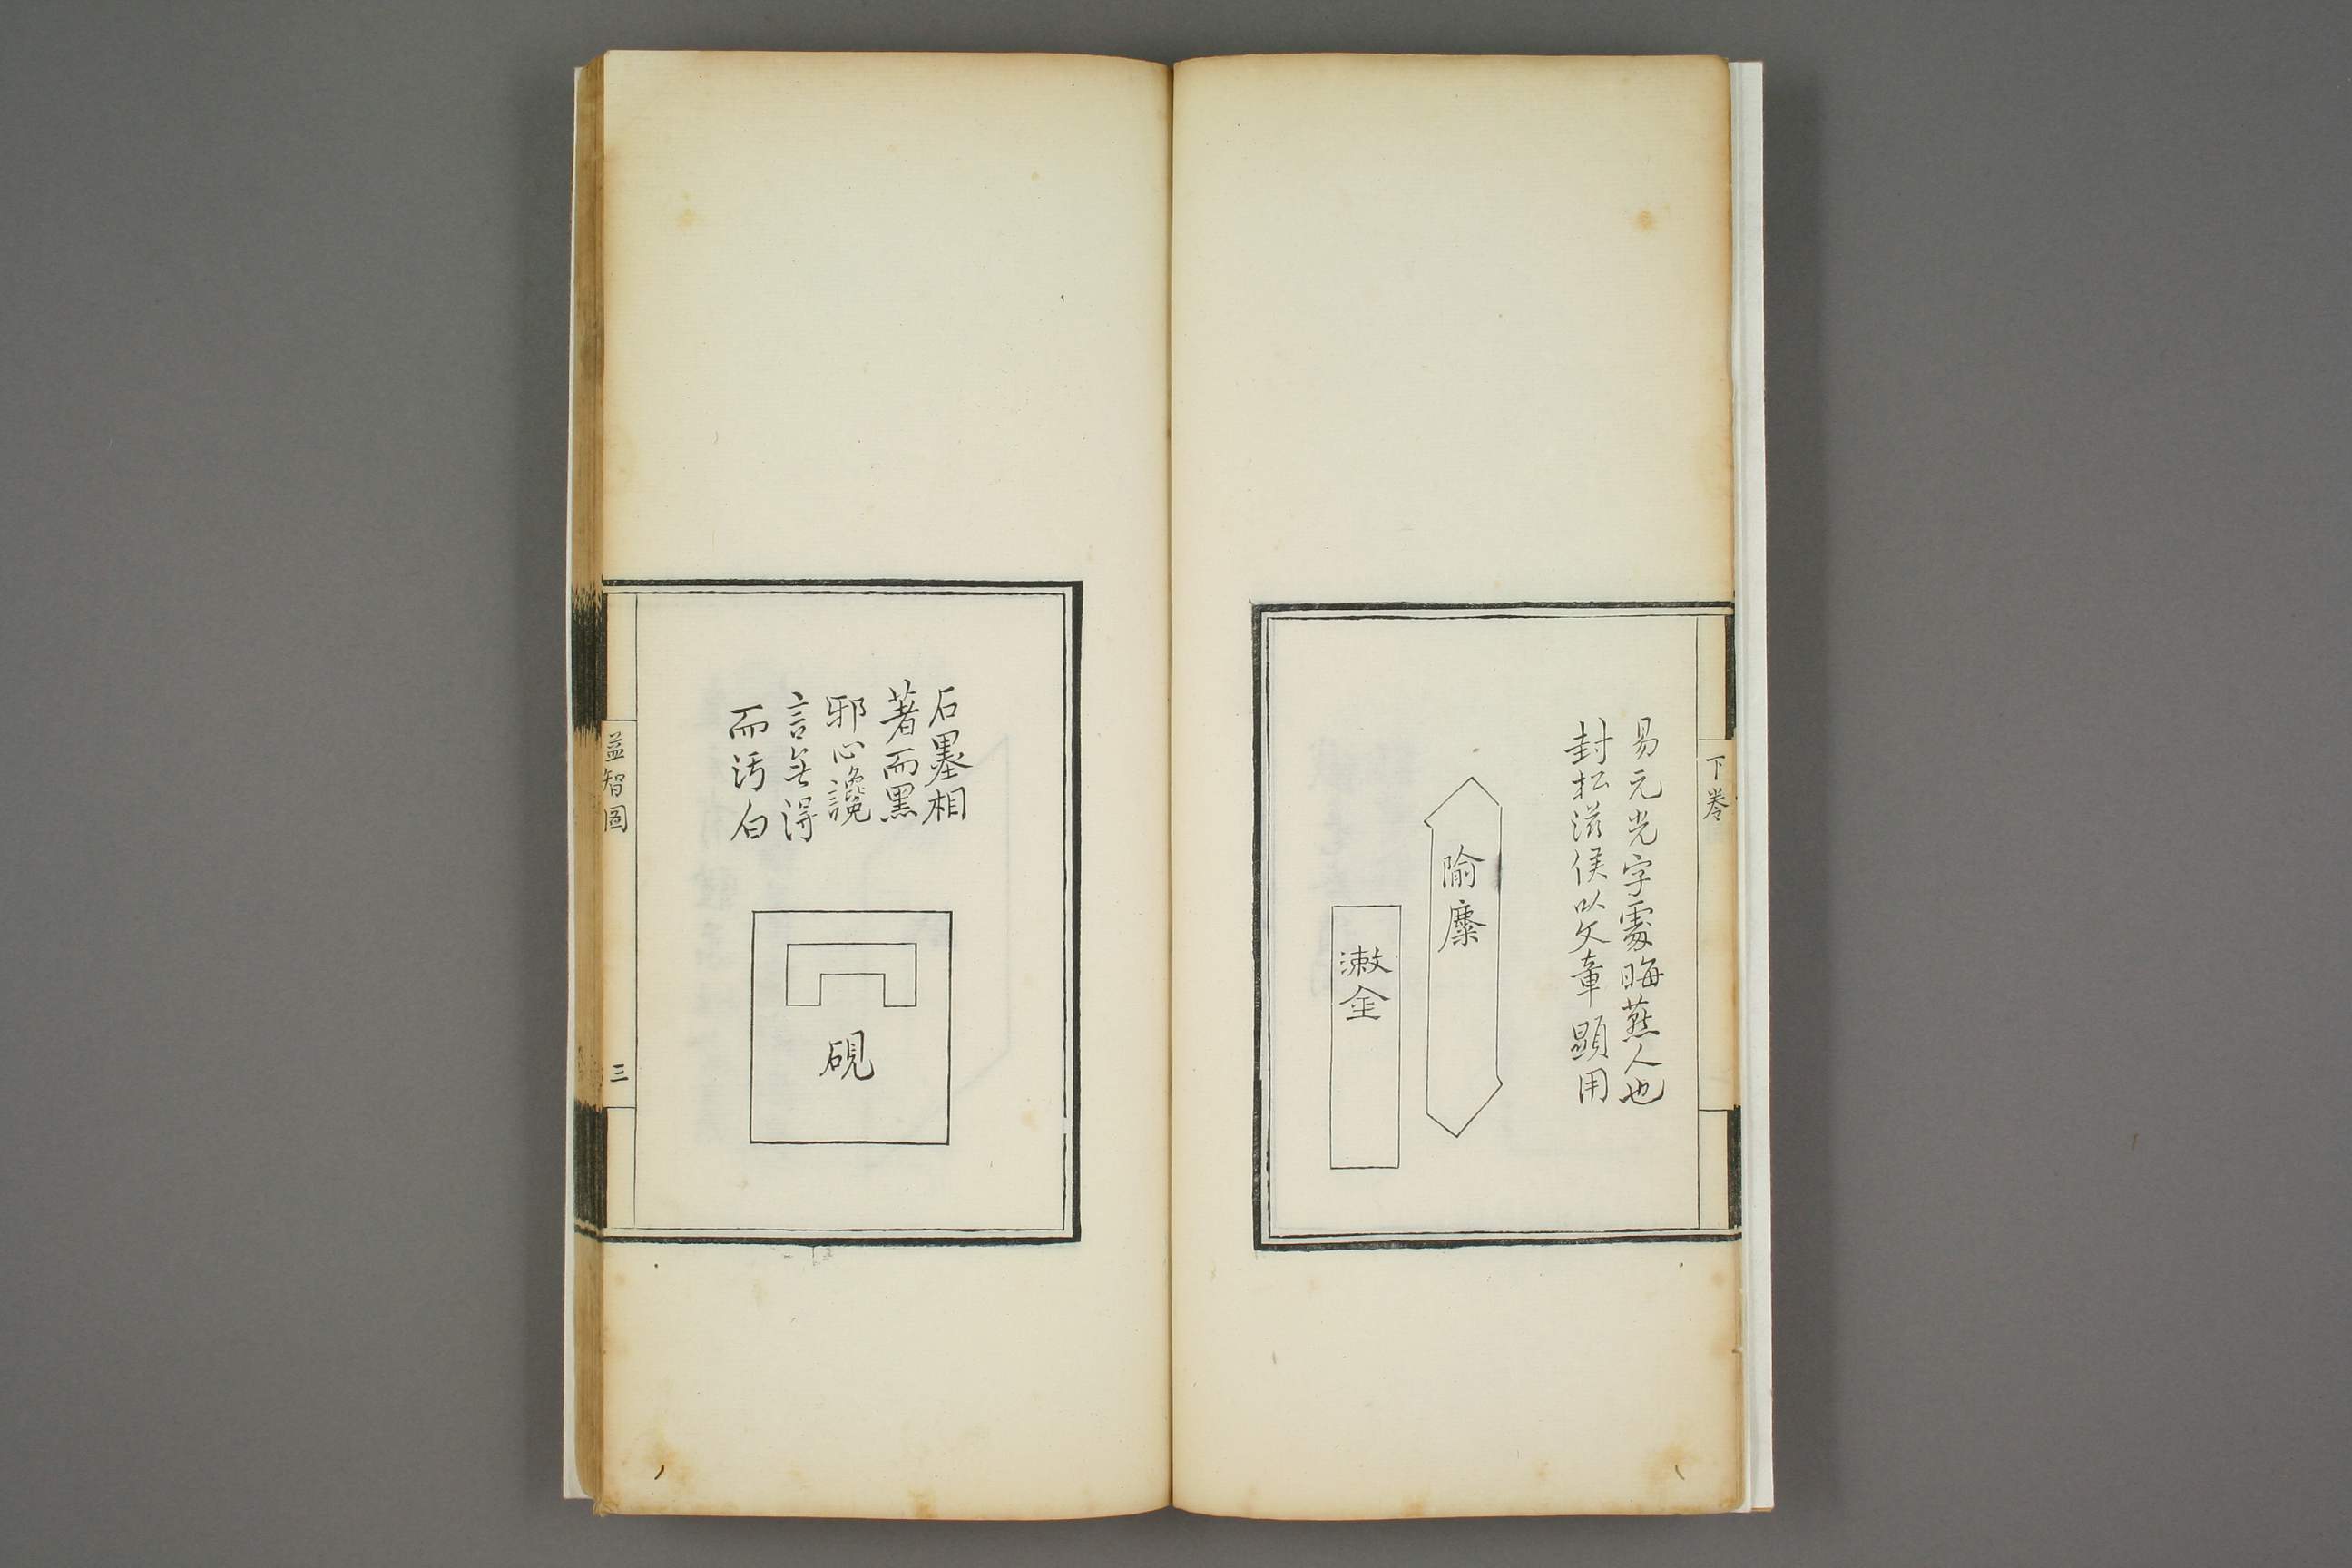 下卷
易元光字處晦燕人也
封松滋侯以文章顯用
隃麋
漱金
石墨相
著而黑
邪心讒
言無得
而汚白
硯
益智圖
三